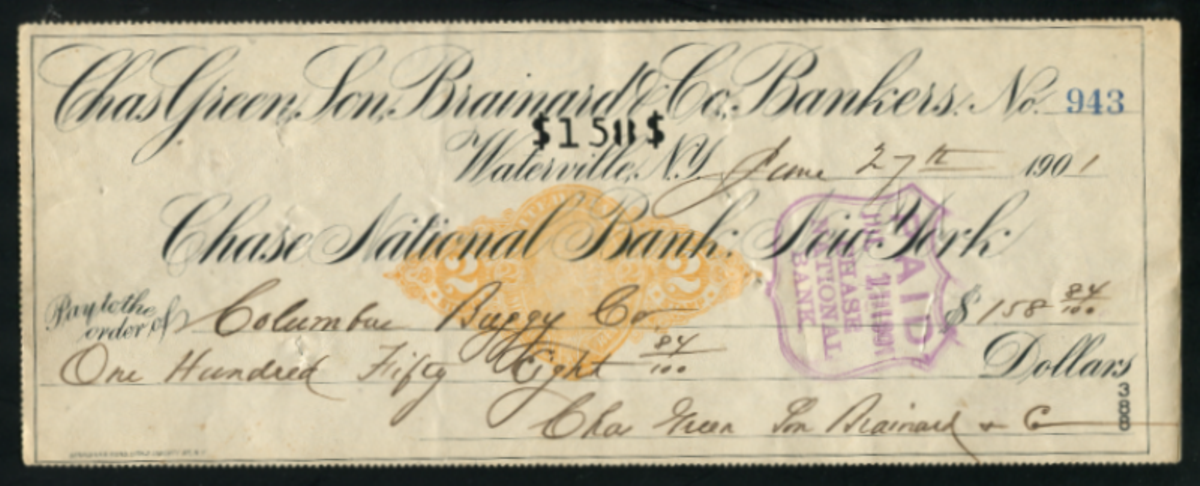 Chas Green, Son, Brainard & Co., Bankers. No. 943
$158$
Waterville, N.Y. June 27th 1901
Chase National Bank, New York
Pay to the order of Columbus Buggy Co. $158 84/100
One Hundred Fifty Eight 84/100 Dollars
Chas Green Son Brainard & Co
388
2 2
PAID
CHASE
NATIONAL
BANK